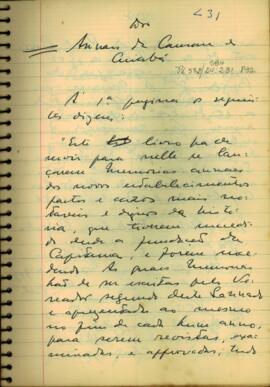 <31
Dos
Annaes da Camara de
Cuiabá
A 1ª pagina os seguin-
tes dizeres:
"Este livro ha de
servir para nelle se lan-
çarem memorias annuaes
dos novos estabelecimentos
factos e cazos mais no-
taveis e dignos da histo-
ria, que tiverem succedi-
do desde a fundação da
Capitania, e forem succe-
dendo As quais memorias
hão de ser escritas pelo Ve-
reador segundo deste Senado
e aprezentadas ao mesmo
no fim de cada hum anno,
para serem revistas, exa-
minadas, e approvadas, tudo